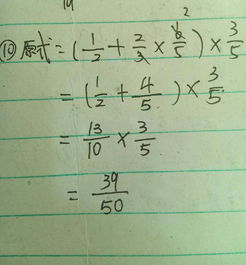 19
⑩原式=(1/2+2/3×6/5)×3/5
2
=(1/2+4/5)×3/5
=13/10×3/5
=39/50